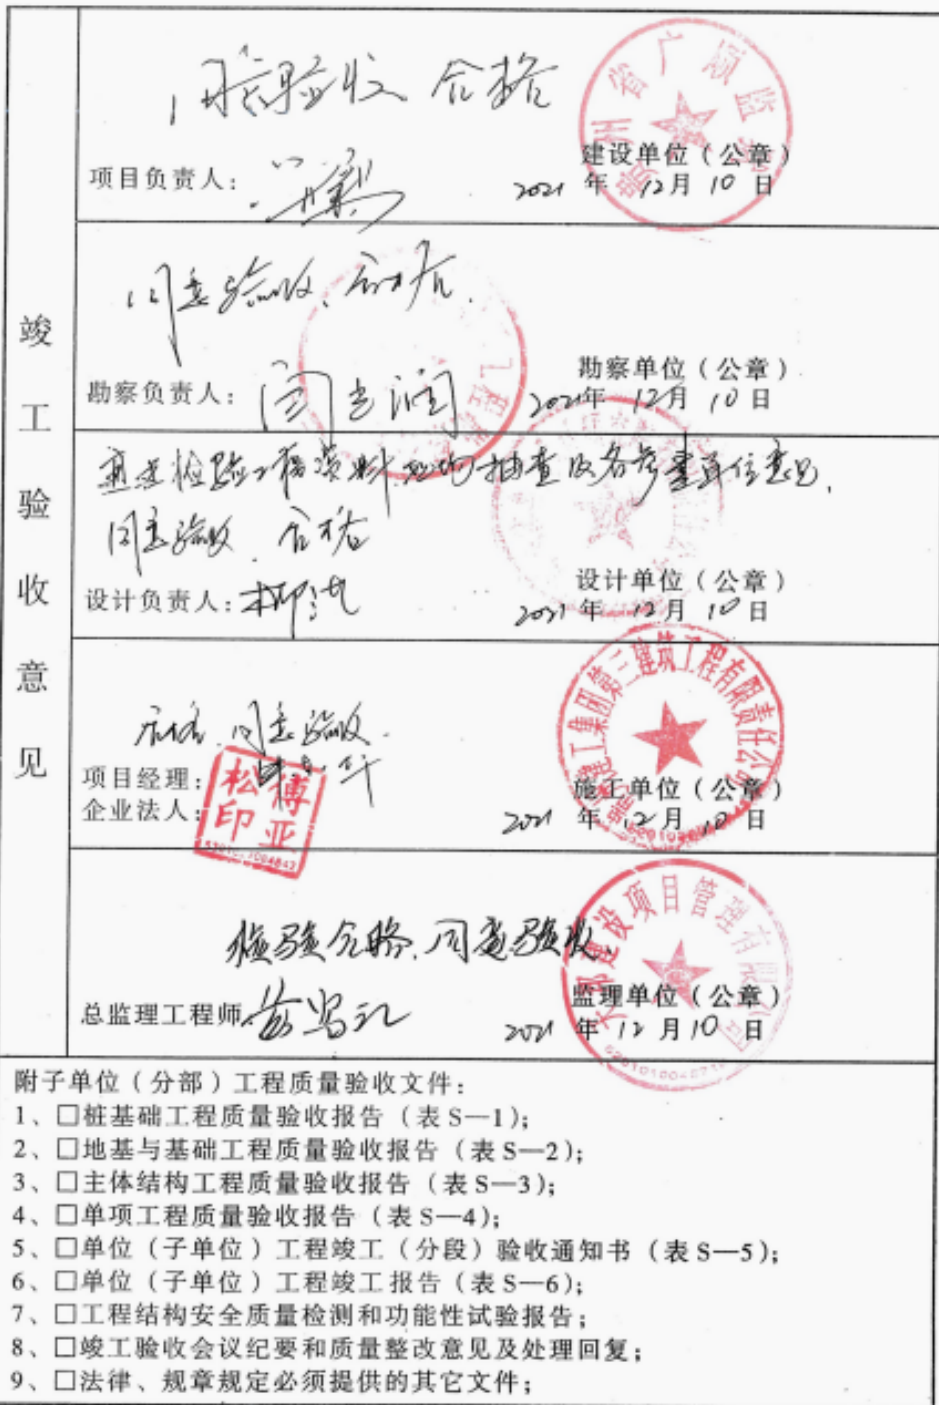 竣工验收意见
同意验收 合格
贵州省广顺监狱
项目负责人：
建设单位（公章）
2021年12月10日
同意验收、合格.
勘察负责人：
勘察单位（公章）
2021年12月10日
同意验收、合格
设计负责人：
设计单位（公章）
2021年12月10日
合格、同意验收.
建工集团第三建筑工程有限责任公司
项目经理：
企业法人：
傅亚松印
施工单位（公章）
2021年12月10日
检验合格、同意验收.
建设项目管理有限公司
总监理工程师
监理单位（公章）
2021年12月10日
附子单位（分部）工程质量验收文件：
1、□桩基础工程质量验收报告（表S—1）；
2、□地基与基础工程质量验收报告（表S—2）；
3、□主体结构工程质量验收报告（表S—3）；
4、□单项工程质量验收报告（表S—4）；
5、□单位（子单位）工程竣工（分段）验收通知书（表S—5）；
6、□单位（子单位）工程竣工报告（表S—6）；
7、□工程结构安全质量检测和功能性试验报告；
8、□竣工验收会议纪要和质量整改意见及处理回复；
9、□法律、规章规定必须提供的其它文件；